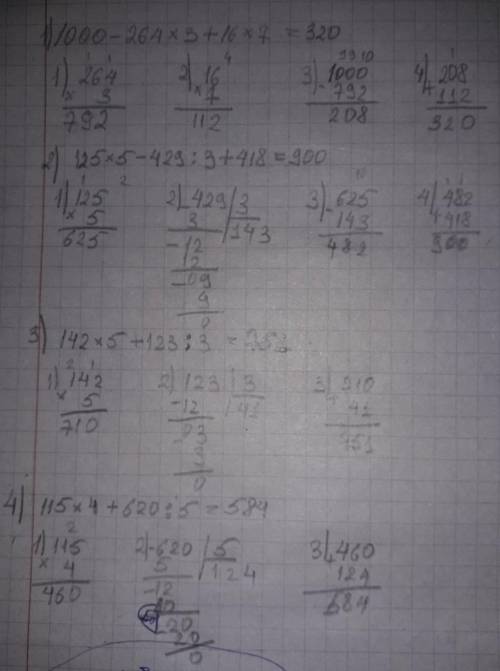 1) 1000 - 264 × 3 + 16 × 7 = 320
1) 264 × 3 792
2) 16 × 7 112
3) 1000 - 792 208
4) 208 + 112 320
2) 125 × 5 - 429 : 3 + 418 = 900
1) 125 × 5 625
2) 429 3 143 3 - 12 12 - 09 9 0
3) 625 - 143 482
4) 482 + 418 900
3) 142 × 5 + 123 : 3 =
1) 142 × 5 710
2) 123 3 41 - 12 - 03 3 0
3) 41
4) 115 × 4 + 620 : 5 = 584
1) 115 × 4 460
2) - 620 5 124 5 - 12 10 - 20 20 0
3) 460 + 124 584